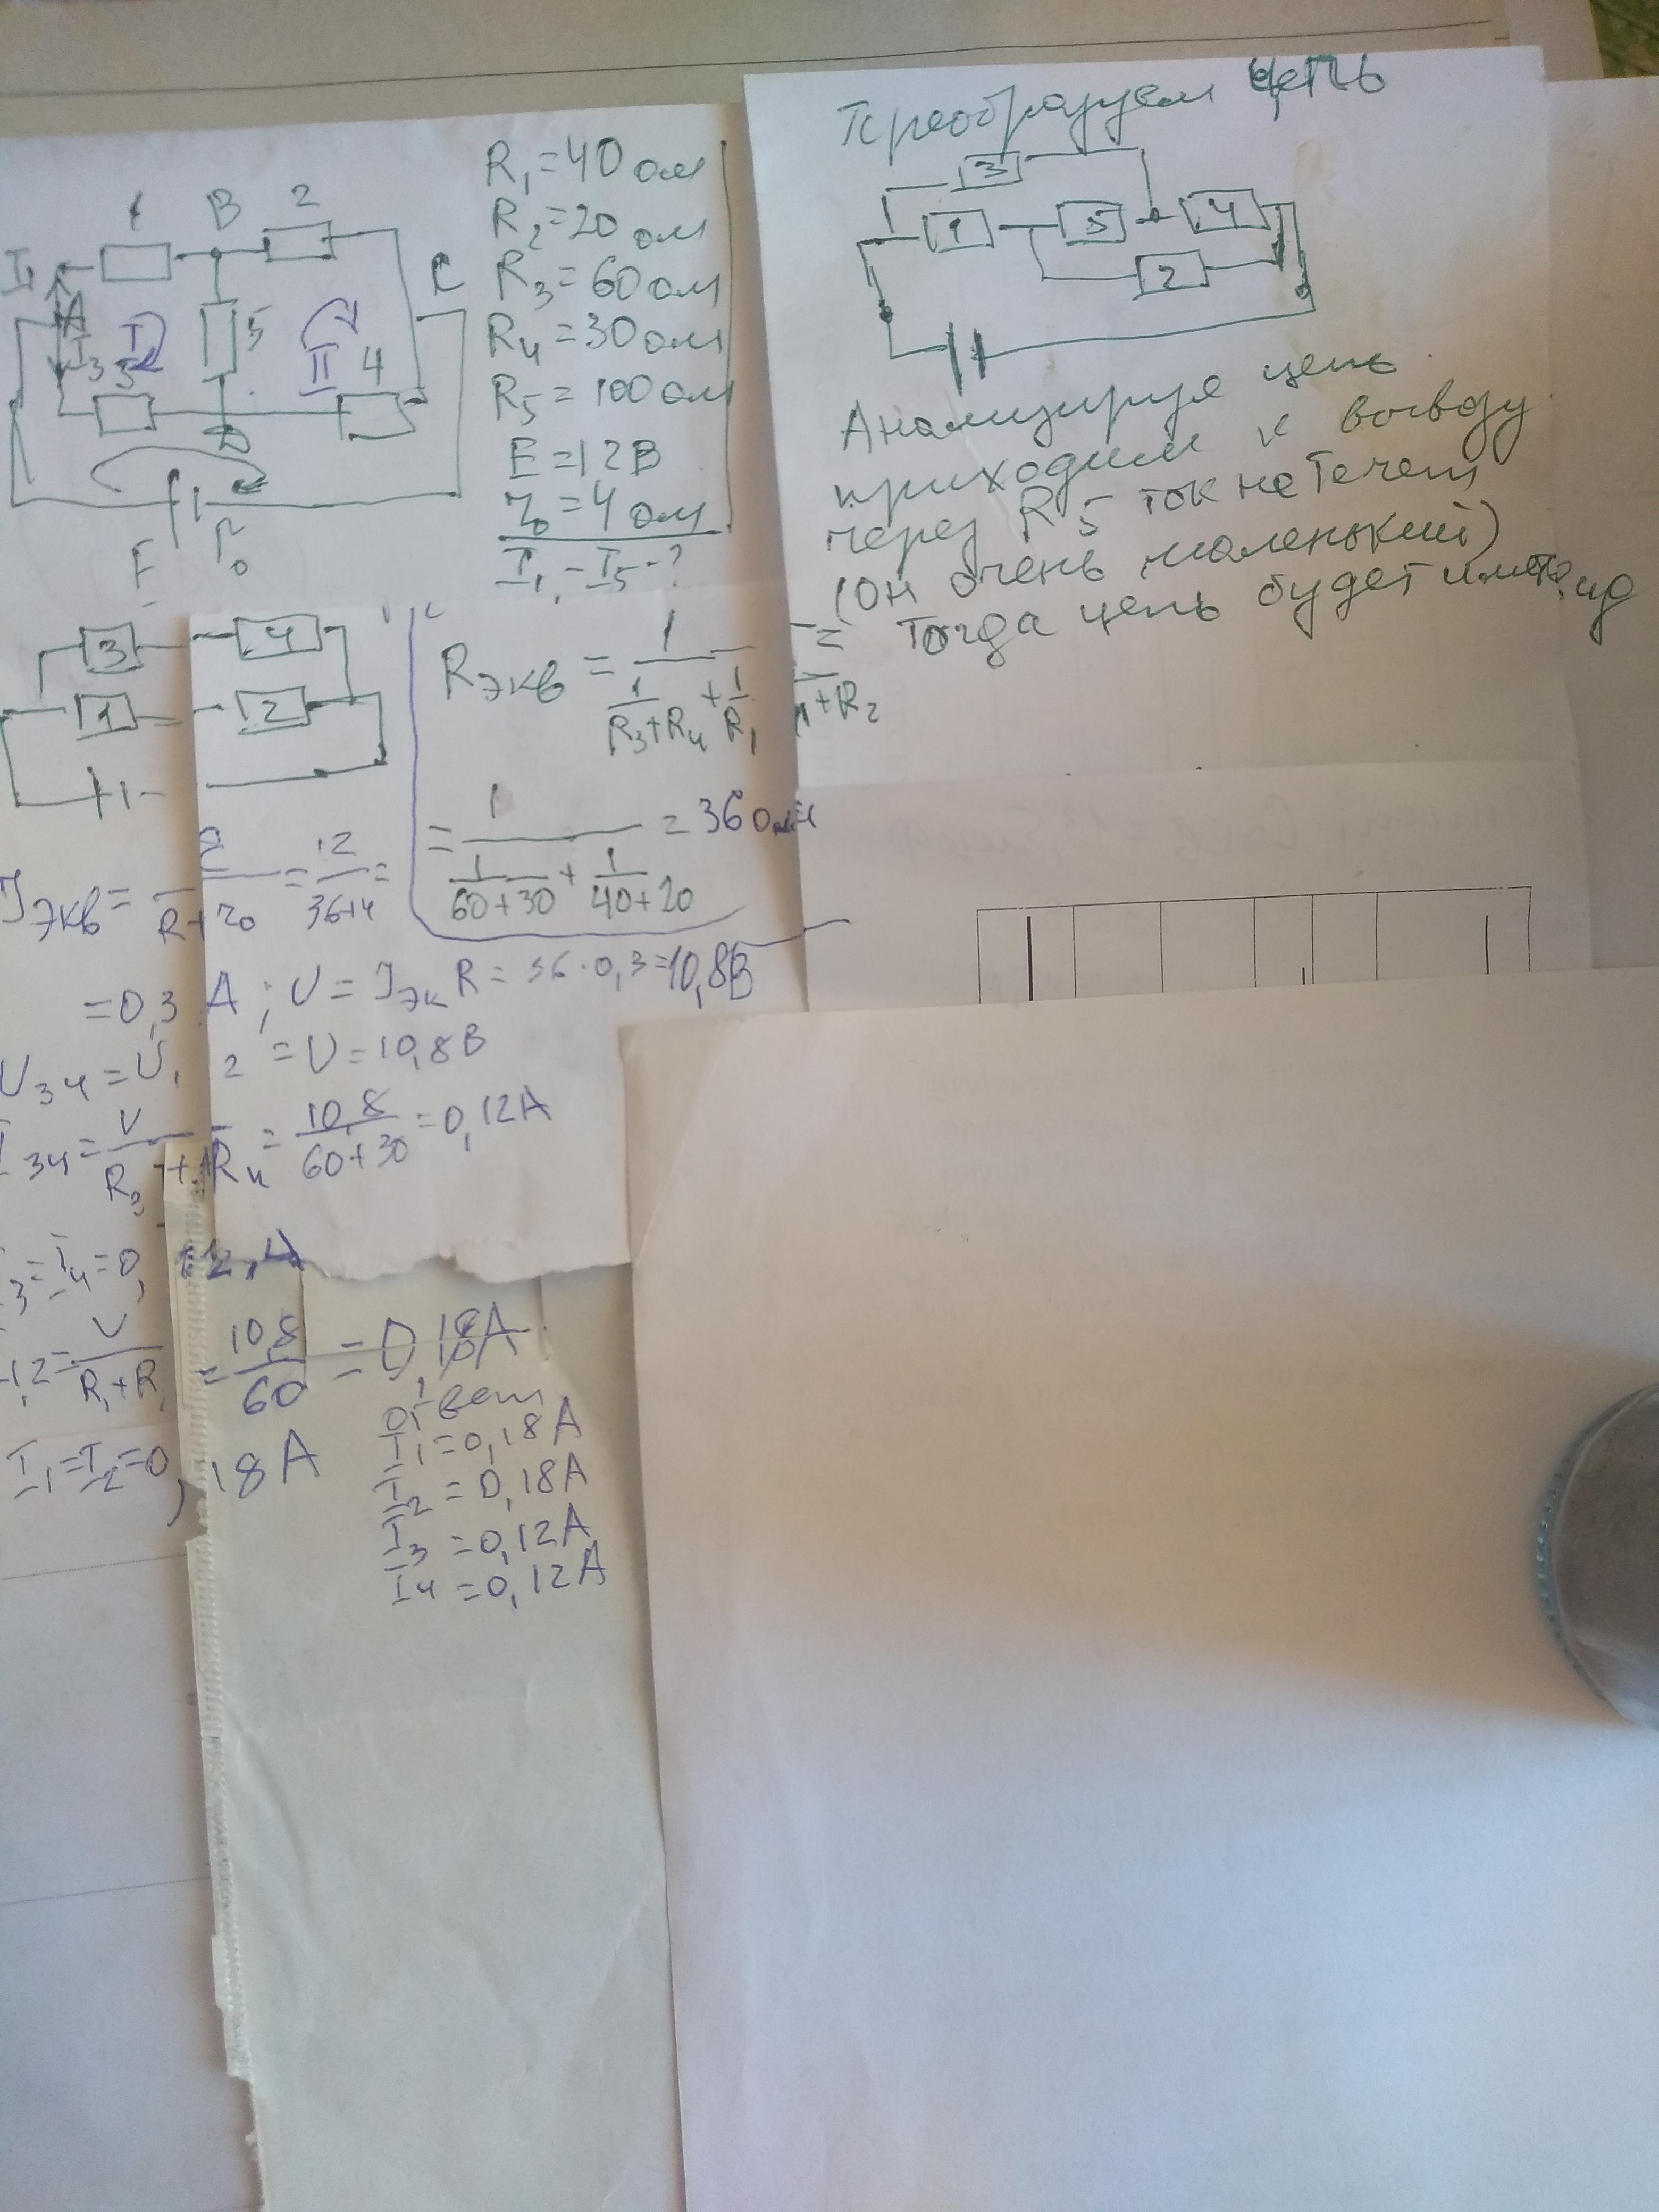 1 B 2
I₁ A C
I₃ 3 I 5 II 4
D
E r₀
R₁=40 ом
R₂=20 ом
R₃=60 ом
R₄=30 ом
R₅=100 ом
E=12В
r₀=4 ом
I₁-I₅-?
Преобразуем цепь
3
1 5 4
2
Анализируя цепь
приходим к выводу
через R5 ток не течет
(он очень маленький)
тогда цепь будет иметь вид
3 4
1 2
Rэкв = 1/(1/(R₃+R₄) + 1/(R₁+R₂)) =
= 1/(1/(60+30) + 1/(40+20)) = 36 ом
Iэкв = E/(R+r₀) = 12/(36+4) =
=0,3 А ; U = Iэк R = 36·0,3=10,8В
U₃₄=U₁₂ =U=10,8В
I₃₄=U/(R₃+R₄)=10,8/(60+30)=0,12А
I₃=I₄=0,12А
I₁,₂=U/(R₁+R₂)=10,8/60=0,18А
I₁=I₂=0,18А
Ответ
I₁=0,18А
I₂=0,18А
I₃=0,12А
I₄=0,12А